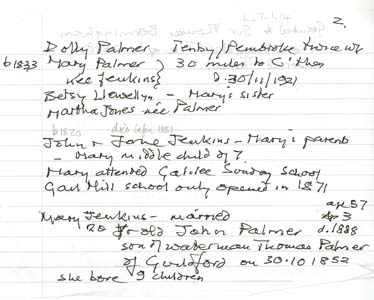 2.
Dolly Palmer Tenby/Pembroke twice wk
b 1833 Mary Palmer } 30 miles to C'then
née Jenkins } d. 30/11/1921
Betsy Llewellyn - Mary's sister
Martha Jones née Palmer
b1820 died Sept 1881
John + Jane Jenkins - Mary's parents
- Mary middle child of 7.
Mary attended Galilee Sunday School
Gars Hill school only opened in 1871
age 57
Mary Jenkins - married Ap 3
20 yr old John Palmer d. 1888
son of waterman Thomas Palmer
of Guildford on 30.10 1852
she bore 9 children